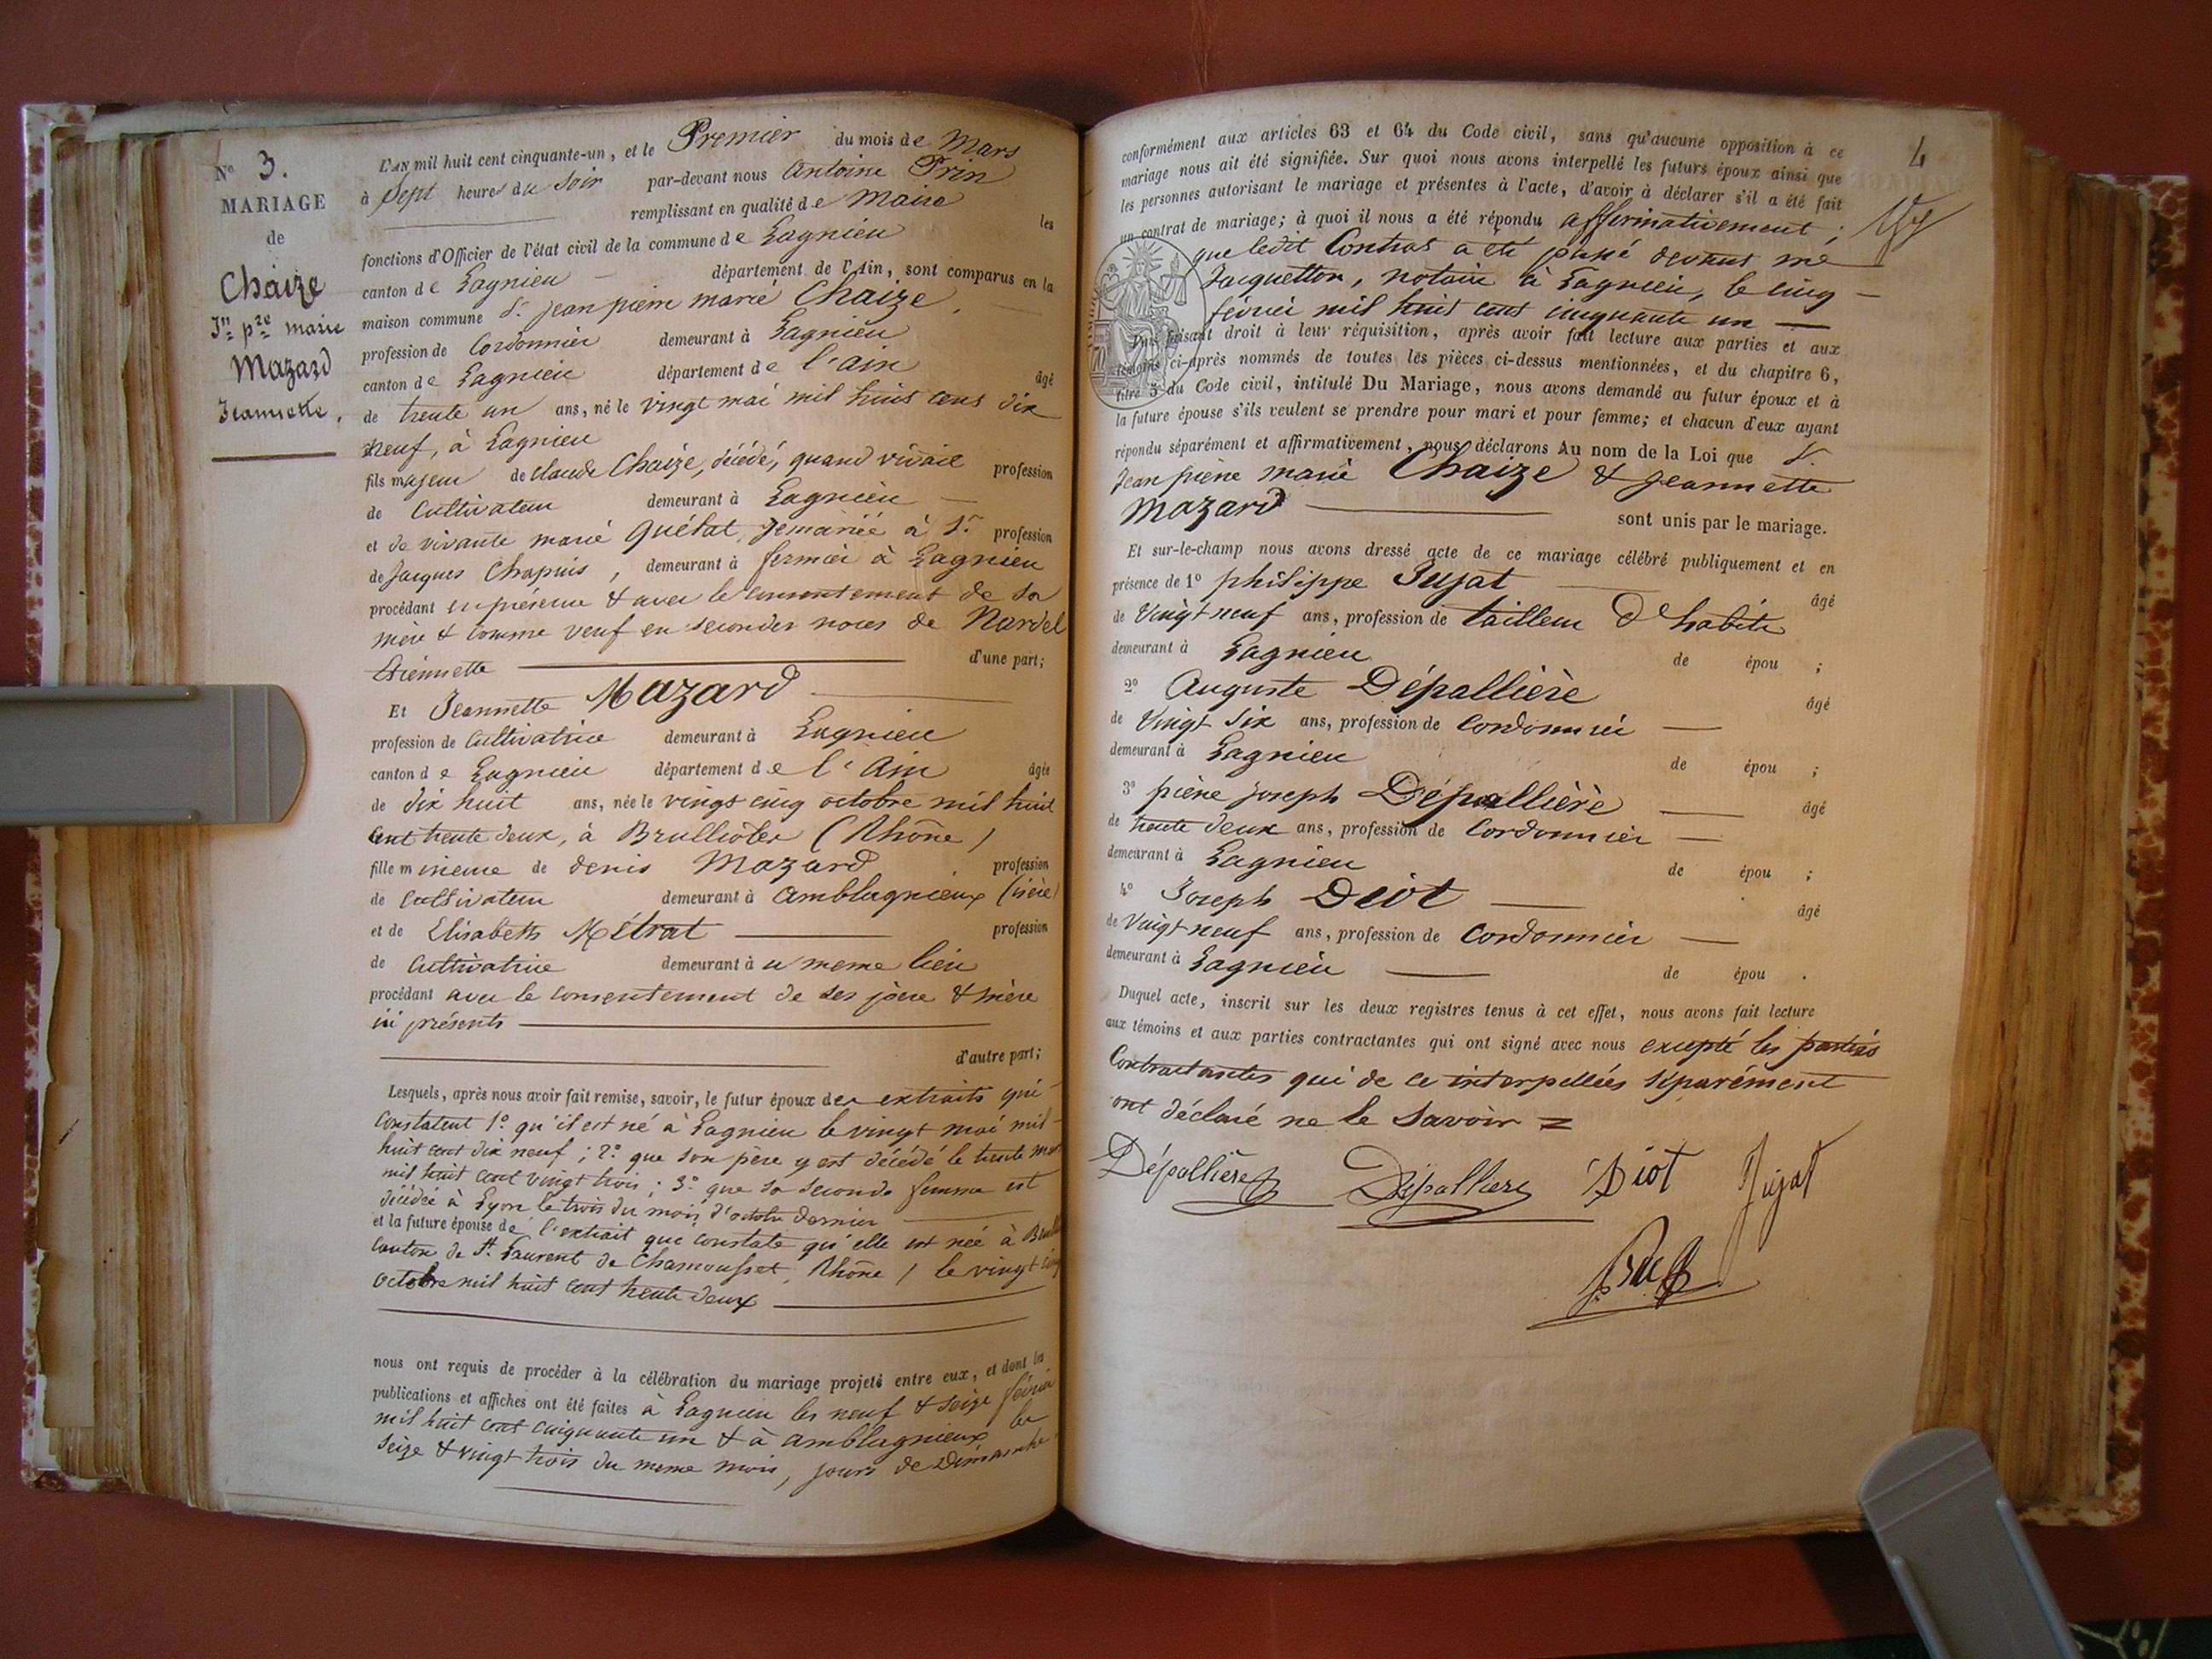 No 3.
MARIAGE
de
Chaize
Jn pre marie
Mazard
Jeannette.
L'AN mil huit cent cinquante-un, et le Premier du mois de Mars
à Sept heures du Soir par-devant nous Antoine Prin
remplissant en qualité de Maire les
fonctions d'Officier de l'état civil de la commune de Lagnieu
canton de Lagnieu département de l'Ain, sont comparus en la
maison commune Sr. jean pierre marie Chaize,
profession de Cordonnier demeurant à Lagnieu
canton de Lagnieu département de l'ain âgé
de trente un ans, né le vingt mai mil huit cent dix
neuf, à Lagnieu
fils majeur de claude Chaize, décédé, quand vivait profession
de Cultivateur demeurant à Lagnieu
et de vivante marie Quétat, remariée à Sr. profession
de Jacques Chapuis, demeurant à fermier à Lagnieu
procédant en présence & avec le consentement de sa
mère & comme veuf en secondes noces de Nardel
Etiennette d'une part;
Et Jeannette Mazard
profession de Cultivatrice demeurant à Lagnieu
canton de Lagnieu département de l'Ain âgée
de dix huit ans, née le vingt cinq octobre mil huit
cent trente deux, à Brullioles (Rhône)
fille mineure de denis Mazard profession
de Cultivateur demeurant à Amblagnieux (isère)
et de Elisabeth Métrat profession
de Cultivatrice demeurant à u meme lieu
procédant avec le consentement de ses père & mère
ici présents
d'autre part;
Lesquels, après nous avoir fait remise, savoir, le futur époux des extraits qui
constatent 1o. qu'il est né à Lagnieu le vingt mai mil
huit cent dix neuf; 2o. que son père y est décédé le trente
mil huit cent vingt trois; 3o. que sa seconde femme est
décédée à Lyon le trois du mois d'octobre dernier
et la future épouse de l'extrait que constate qu'elle est née à
canton de St. Laurent de Chamousset, Rhône) le vingt cinq
octobre mil huit cent trente deux
nous ont requis de procéder à la célébration du mariage projeté entre eux, et dont les
publications et affiches ont été faites à Lagnieu les neuf & seize février
mil huit cent cinquante un & à amblagnieux les
seize & vingt trois du meme mois, jours de Dimanche
4
conformément aux articles 63 et 64 du Code civil, sans qu'aucune opposition à ce
mariage nous ait été signifiée. Sur quoi nous avons interpellé les futurs époux ainsi que
les personnes autorisant le mariage et présentes à l'acte, d'avoir à déclarer s'il a été fait
un contrat de mariage; à quoi il nous a été répondu affirmativement;
que ledit Contrat a été passé devant me
Jacquetton, notaire à Lagnieu, le cinq
février mil huit cent cinquante un
Puis faisant droit à leur réquisition, après avoir fait lecture aux parties et aux
témoins ci-après nommés de toutes les pièces ci-dessus mentionnées, et du chapitre 6,
titre 5 du Code civil, intitulé Du Mariage, nous avons demandé au futur époux et à
la future épouse s'ils veulent se prendre pour mari et pour femme; et chacun d'eux ayant
répondu séparément et affirmativement, nous déclarons Au nom de la Loi que S.
Jean pierre marie Chaize & Jeannette
Mazard sont unis par le mariage.
Et sur-le-champ nous avons dressé acte de ce mariage célébré publiquement et en
présence de 1o philippe Jujat âgé
de Vingt neuf ans, profession de tailleur d'habits
demeurant à Lagnieu de épou ;
2o Auguste Dépallière âgé
de Vingt Six ans, profession de Cordonnier
demeurant à Lagnieu de épou ;
3o pierre joseph Dépallière âgé
de trente deux ans, profession de Cordonnier
demeurant à Lagnieu de épou ;
4o Joseph Diot âgé
de Vingt neuf ans, profession de Cordonnier
demeurant à Lagnieu de épou .
Duquel acte, inscrit sur les deux registres tenus à cet effet, nous avons fait lecture
aux témoins et aux parties contractantes qui ont signé avec nous excepté les parties
Contractantes qui de ce interpellées séparément
ont déclaré ne le savoir =
Dépallière Dépallière Diot Jujat
Prin